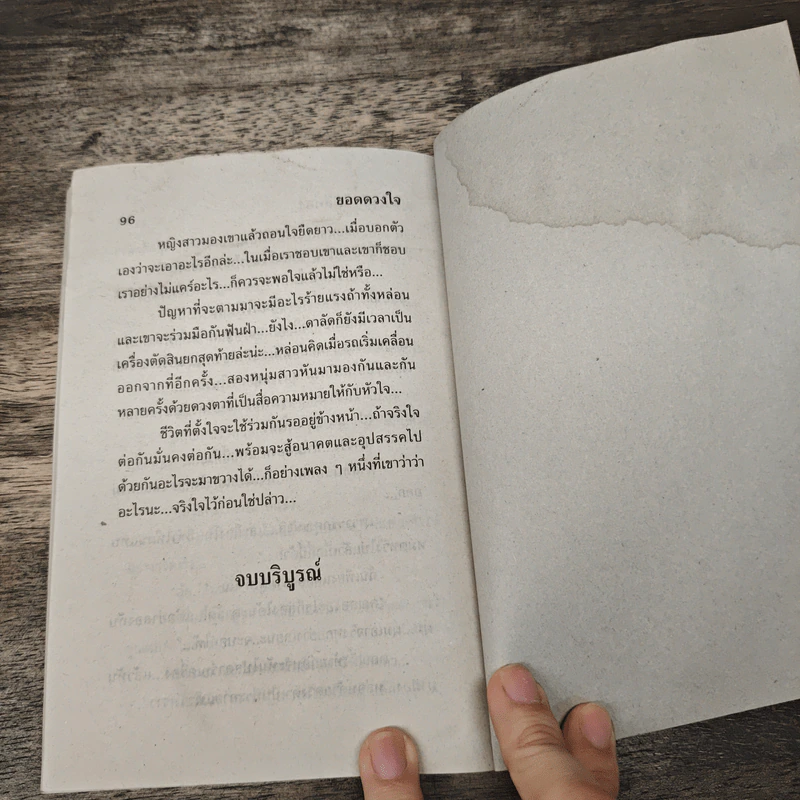 96
ยอดดวงใจ
หญิงสาวมองเขาแล้วถอนใจยืดยาว...เมื่อบอกตัว
เองว่าจะเอาอะไรอีกล่ะ...ในเมื่อเราชอบเขาและเขาก็ชอบ
เราอย่างไม่แคร์อะไร...ก็ควรจะพอใจแล้วไม่ใช่หรือ...
ปัญหาที่จะตามมาจะมีอะไรร้ายแรงถ้าทั้งหล่อน
และเขาจะร่วมมือกันฟันฝ่า...ยังไง...ดาลัดก็ยังมีเวลาเป็น
เครื่องตัดสินยกสุดท้ายล่ะน่ะ...หล่อนคิดเมื่อรถเริ่มเคลื่อน
ออกจากที่อีกครั้ง...สองหนุ่มสาวหันมามองกันและกัน
หลายครั้งด้วยดวงตาที่เป็นสื่อความหมายให้กับหัวใจ...
ชีวิตที่ตั้งใจจะใช้ร่วมกันรออยู่ข้างหน้า...ถ้าจริงใจ
ต่อกันมั่นคงต่อกัน...พร้อมจะสู้อนาคตและอุปสรรคไป
ด้วยกันอะไรจะมาขวางได้...ก็อย่างเพลง ๆ หนึ่งที่เขาว่าว่า
อะไรนะ...จริงใจไว้ก่อนใช่ปล่าว...
จบบริบูรณ์